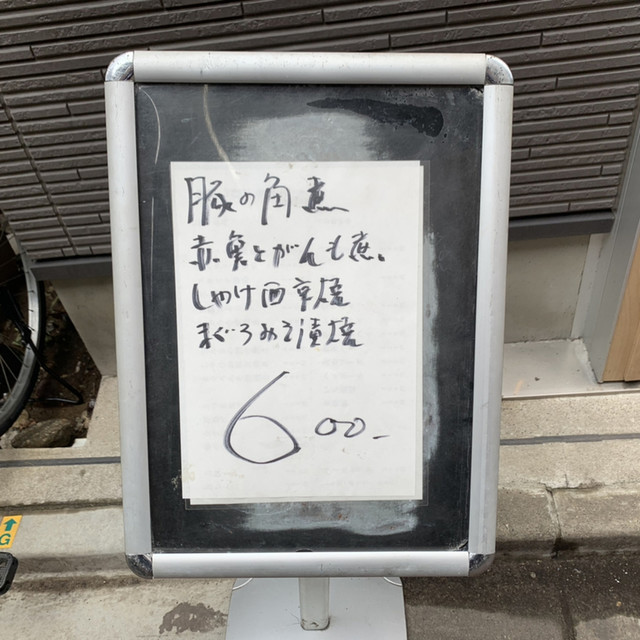 豚の角煮
赤魚とがんも煮
しゃけ西京焼
まぐろみそ漬焼
600-
G